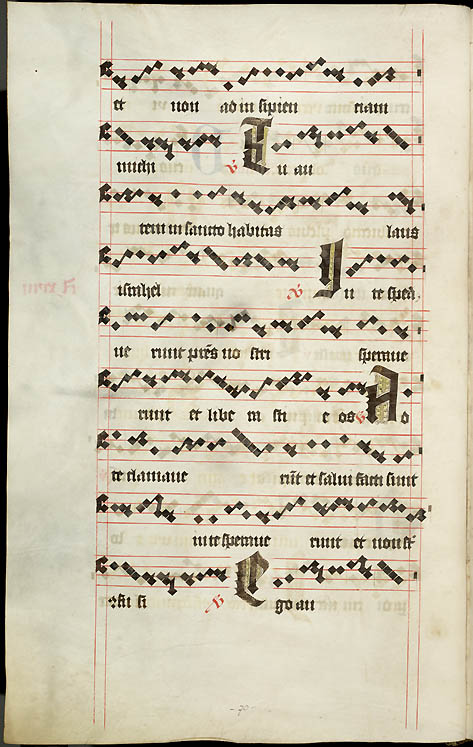 et non ad in sipien ciam
michi ℣ Tu au
tem in sancto habitas laus
israhel ℣ In te spea
ue runt pr̄es no stri speraue
runt et libe ra sti e os ℣ Ad
te clamaue rūt et salui facti sunt
in te speraue runt et non st̄
fusi si ℣ Ego au